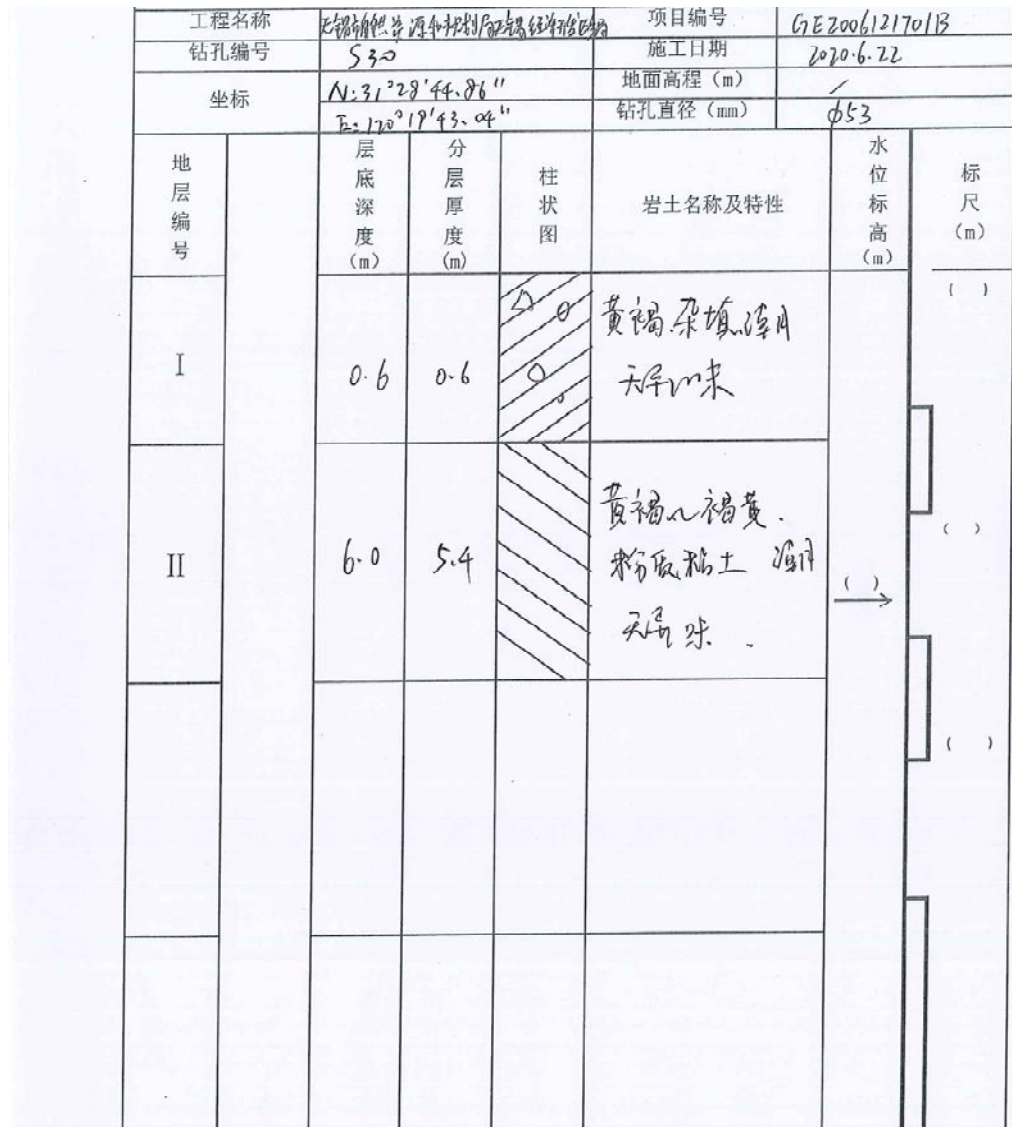 工程名称 无锡市自然资源和规划局无锡经济 项目编号 GE2006121701B
钻孔编号 S30 施工日期 2020.6.22
坐标 N:31°28'44.86" 地面高程（m） /
E:120°19'43.04" 钻孔直径（mm） φ53
地层编号 层底深度(m) 分层厚度(m) 柱状图 岩土名称及特性 水位标高(m) 标尺(m)
( )
I 0.6 0.6 黄褐.杂填.湿
无异味
II 6.0 5.4 黄褐~褐黄.
粉质粘土 湿
无异味.
( )
( )
( )